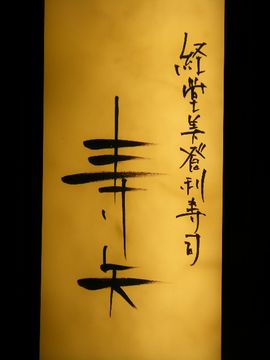 経堂美登利寿司
寿矢